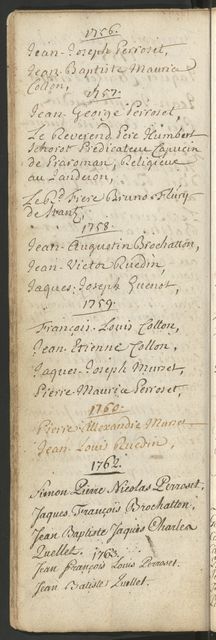 1756.
Jean-Joseph Perroset,
Jean-Baptiste Maurice
Collon,
1757.
Jean-George Perroset,
Le Reverend Pere Humbert
Predicateur Capucin
de Praroman, Religieux
au Landeron,
Le Rd. Frere Bruno Flüry
de
1758.
Jean-Augustin Brochatton,
Jean-Victor Ruedin,
Jaques-Joseph Guenot,
1759.
François-Louis Collon,
Jean-Etienne Collon,
Jaques-Joseph Muriset,
Pierre-Maurice Perroset,
1760.
Pierre-Allexandre
Jean-Louis Ruedin,
1762.
Simon Pierre Nicolas Perroset.
Jaques François Brochatton.
Jean Baptiste Jaques Charles
Quellet.
1763.
Jean François Louis Perroset.
Jean Batiste Quellet.